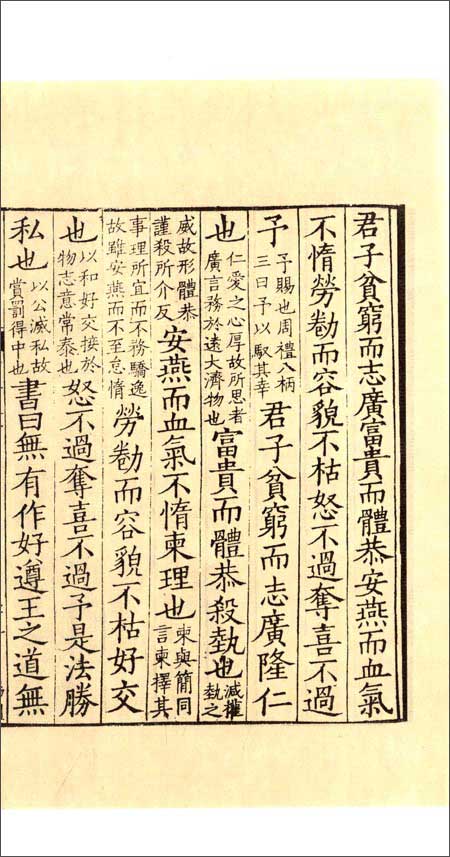 君子貧窮而志廣富貴而體恭安燕而血氣
不惰勞勌而容貌不枯怒不過奪喜不過
予予賜也周禮八柄三曰予以馭其幸君子貧窮而志廣隆仁
也仁愛之心厚故所思者廣言務於遠大濟物也富貴而體恭殺埶也減權埶之
威故形體恭謹殺所介反安燕而血氣不惰柬理也柬與簡同言柬擇其
事理所宜而不務驕逸故雖安燕而不至怠惰勞勌而容貌不枯好交
也以和好交接於物志意常泰也怒不過奪喜不過予是法勝
私也以公滅私故賞罰得中也書曰無有作好遵王之道無